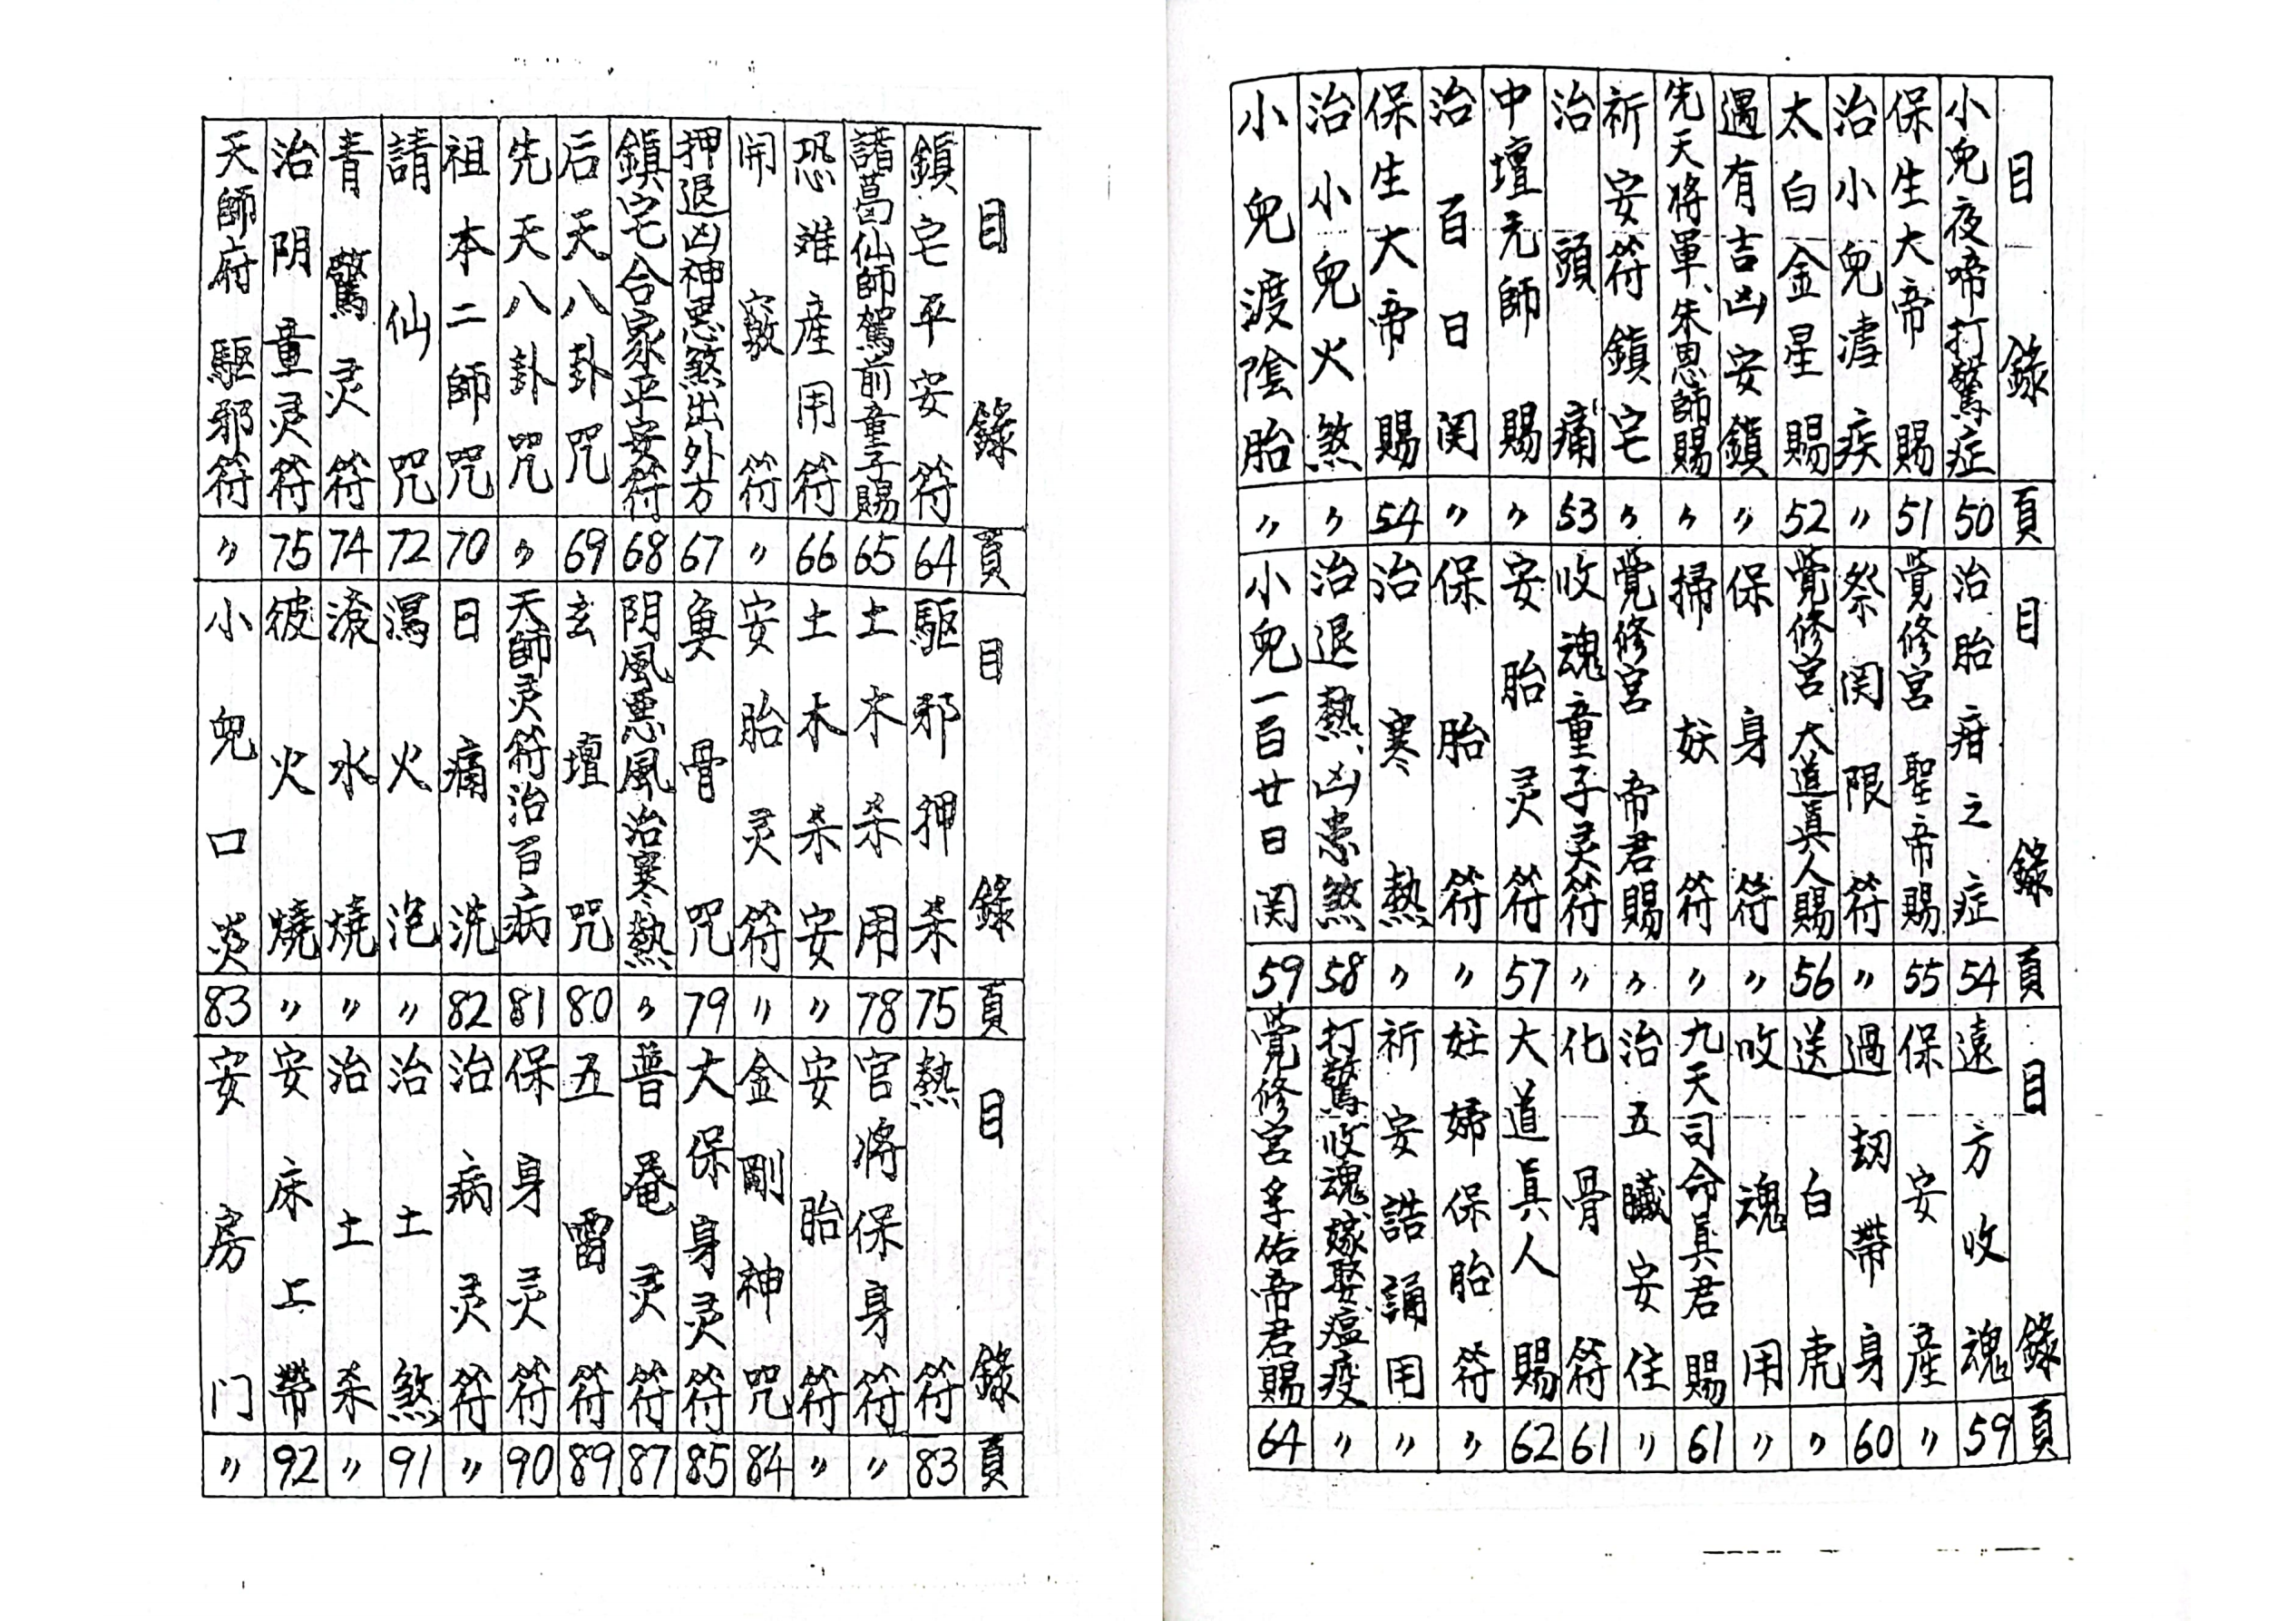 目錄 頁
小兒夜啼打驚症 50
保生大帝賜 51
治小兒瘧疾 〃
太白金星賜 52
遇有吉凶安鎮 〃
先天將軍、朱恩師賜 〃
祈安符鎮宅 〃
治頭痛 53
中壇元師賜 〃
治百日関 〃
保生大帝賜 54
治小兒火煞 〃
小兒渡陰胎 〃
目錄 頁
治胎疳之症 54
覺修宮聖帝賜 55
祭関限符 〃
覺修宮大道真人賜 56
保身符 〃
掃妖符 〃
覺修宮帝君賜 〃
收魂童子灵符 〃
安胎灵符 57
保胎符 〃
治寒熱 〃
治退熱、凶患煞 58
小兒一百廿日関 59
目錄 頁
遠方收魂 59
保安産 〃
過刼帶身 60
送白虎 〃
收魂用 〃
九天司命真君賜 61
治五臟安住 〃
化骨符 61
大道真人賜 62
妊婦保胎符 〃
祈安誥誦用 〃
打驚、收魂、嫁娶、瘟疫 〃
覺修宮孚佑帝君賜 64
目錄 頁
鎮宅平安符 64
諸葛仙師駕前童子賜 65
恐难産用符 66
開竅符 〃
押退凶神恶煞出外方 67
鎮宅合家平安符 68
后天八卦咒 69
先天八卦咒 〃
祖本二師咒 70
請仙咒 72
青驚灵符 74
治阴童灵符 75
天師府驅邪符 〃
目錄 頁
驅邪押杀 75
土木杀用 78
土木杀安 〃
安胎灵符 〃
魚骨咒 79
阴風悪風治寒熱 〃
玄壇咒 80
天師灵符治百病 81
日痛洗 82
瀉火泡 〃
滾水燒 〃
彼火燒 〃
小兒口炎 83
目錄 頁
熱符 83
官将保身符 〃
安胎符 〃
金剛神咒 84
大保身灵符 85
普庵灵符 87
五雷符 89
保身灵符 90
治病灵符 〃
治土煞 91
治土杀 〃
安床上帶 92
安房门 〃